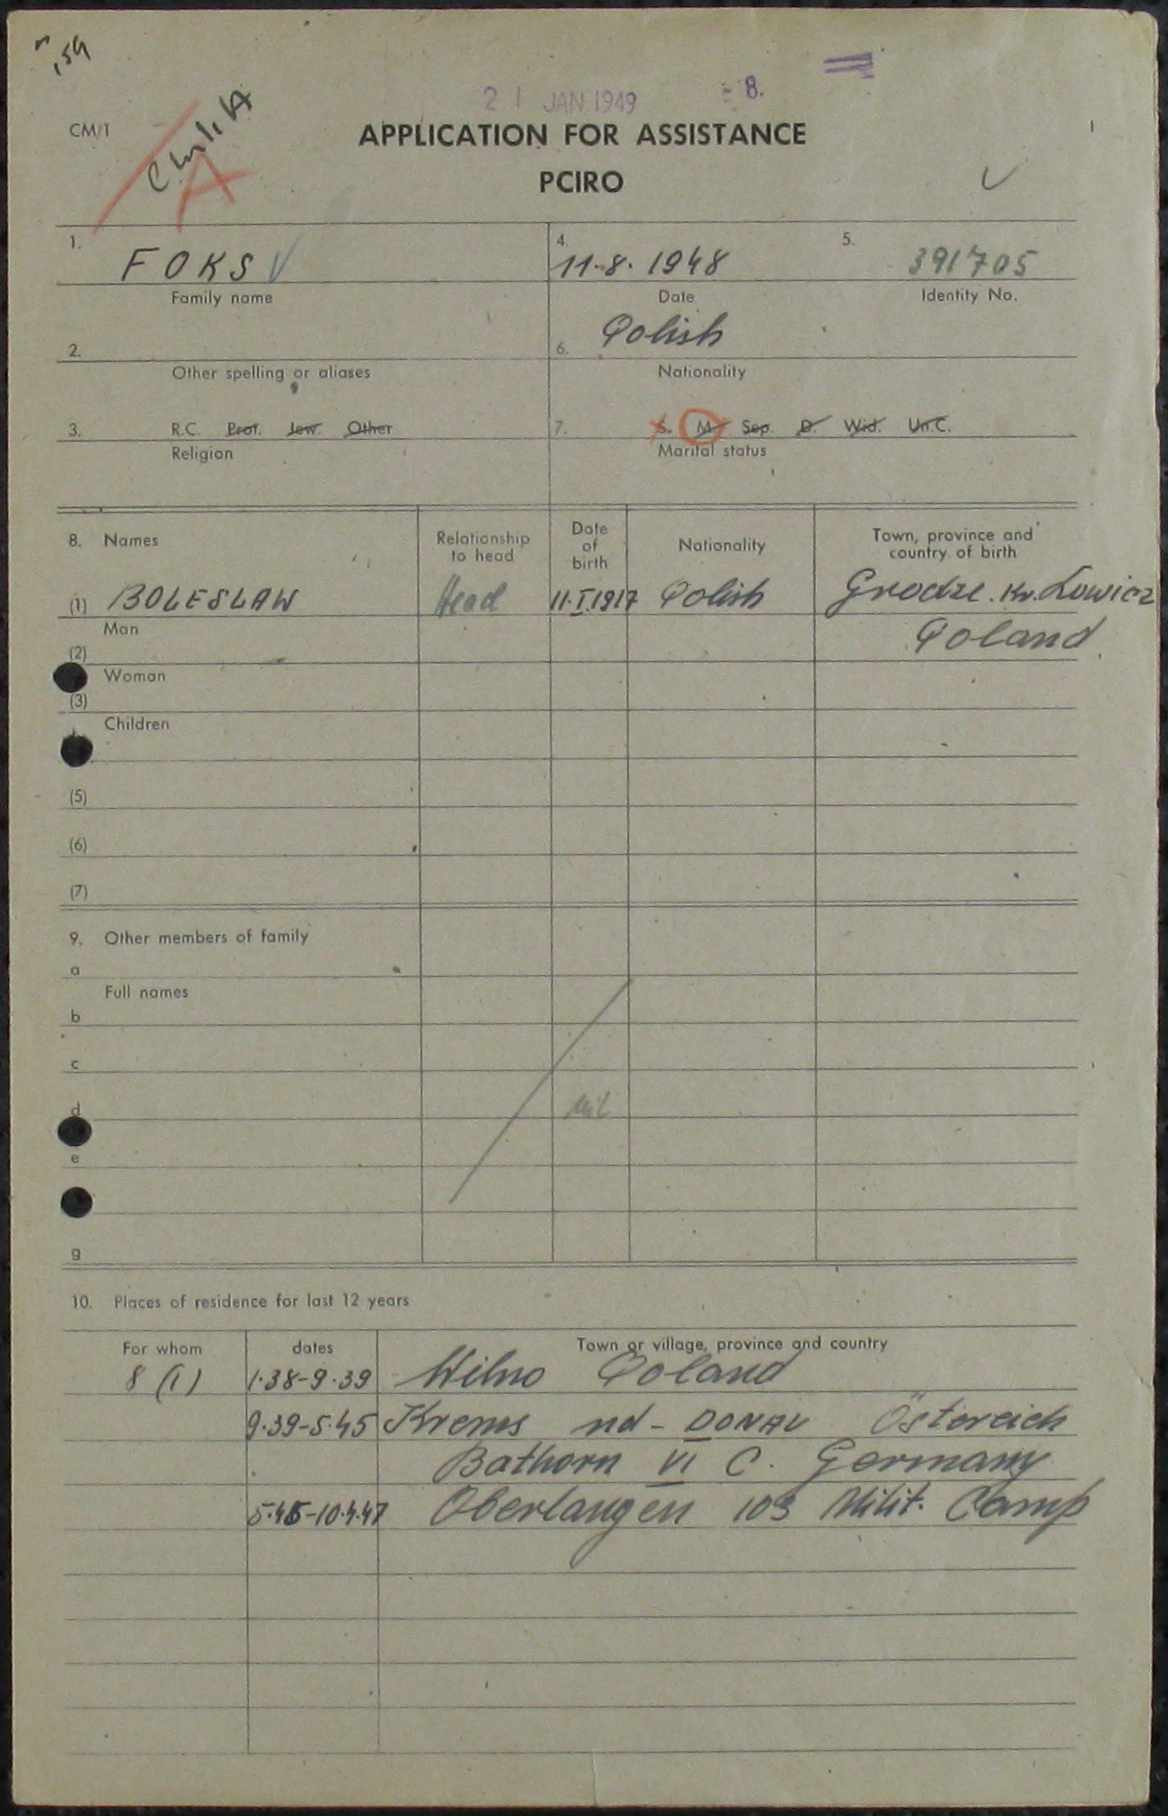 159
21 JAN 1949 8.
CM/1
APPLICATION FOR ASSISTANCE
PCIRO
A
1. FOKS 4. 11.8. 1948 5. 391705
Family name Date Identity No.
2. 6. Polish
Other spelling or aliases Nationality
3. R.C. Prot. Jew. Other 7. S. M. Sep. D. Wid. Un.C.
Religion Marital status
8. Names Relationship to head Date of birth Nationality Town, province and country of birth
(1) BOLESLAW Head 11.I.1917 Polish Grodze. Kr. Lowicz
Man Poland
(2)
Woman
(3)
Children
(5)
(6)
(7)
9. Other members of family
a
Full names
b
c
d nil
e
g
10. Places of residence for last 12 years
For whom dates Town or village, province and country
8 (1) 1.38-9.39 Wilno Poland
9.39-5.45 Krems nd - DONAU Östereich
Bathorn VI C. Germany
5.45-10.4.47 Oberlangen 103 Milit. Camp